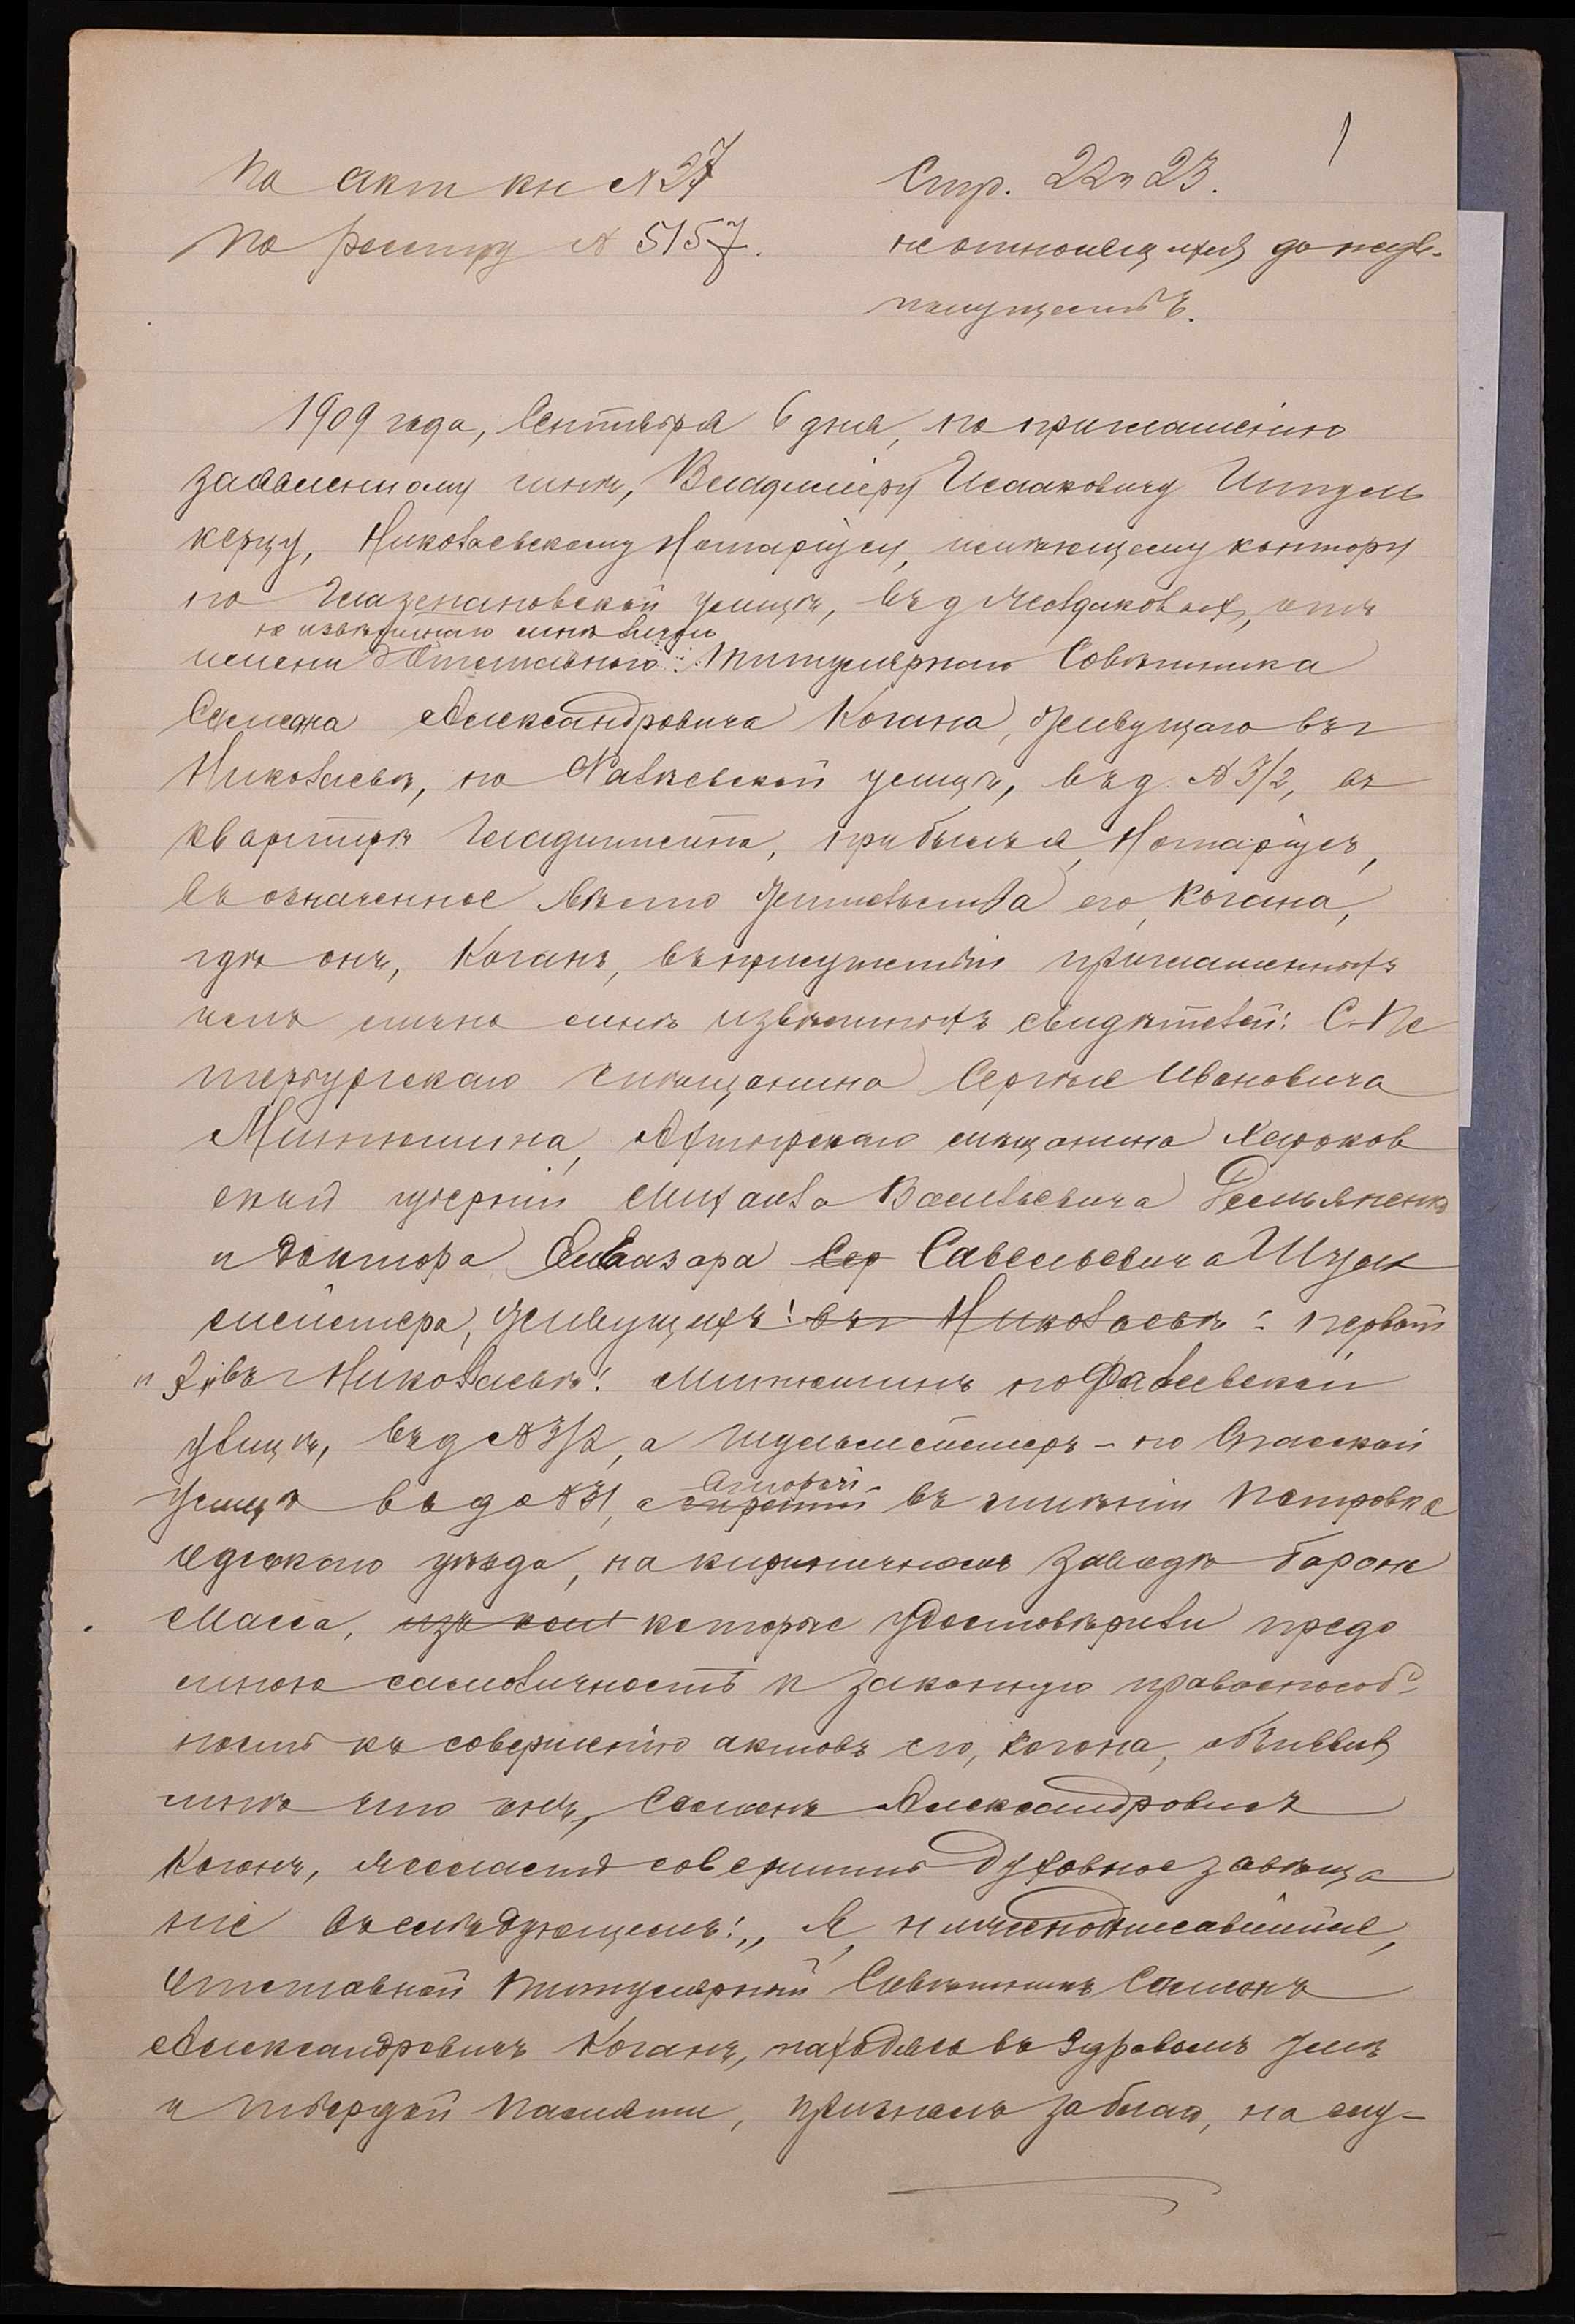 1
По акт кн № 27
Стр. 22 и 23.
По реестру № 5157.
не относящихся до недв.
имуществъ.
1909 года, Сентября 6 дня, по приглашенію
заявленному мнѣ, Владиміру Исааковичу
Николаевскому Нотаріусу, имѣющему контору
по Глазенаповской улицѣ, въ д. отъ
не извѣстнаго мнѣ лично
имени Отставного Титулярнаго Совѣтника
Самсона Александровича Когана, живущаго въ г
Николаевѣ, по Фалѣевской улицѣ, въ д. № 3/2, въ
квартирѣ прибылъ я, Нотаріусъ,
въ означенное мѣсто жительства его, Когана,
гдѣ онъ, Коганъ, въ присутствіи приглашенныхъ
имъ лично мнѣ извѣстныхъ свидѣтелей: С-Пе
тербургскаго мѣщанина Сергѣя Ивановича
Митюшина, Ахтырскаго мѣщанина Харьков
ской губерніи Михаила Васильевича Демьяненко
и Доктора Елеазара Сер Савельевича Шуль
мейстера, живущихъ: въ г Николаевѣ: первый
и 3й въ г Николаевѣ: Митюшинъ по Фалѣевской
улицѣ, въ д № 3/2, а Шульмейстеръ - по Спасской
улицѣ въ д № 31, а второй въ имѣніи Петровка
Одесскаго уѣзда, на кирпичномъ заводѣ барона
Масса, которые удостовѣрили предо
мною самоличность и законную правоспособ-
ность къ совершенію актовъ его, Когана, объявилъ
мнѣ что онъ, Самсонъ Александровичъ
Коганъ, желаетъ совершить Духовное завѣща
ніе въ слѣдующемъ: „Я, нижеподписавшійся,
Отставной Титулярный Совѣтникъ Самсонъ
Александровичъ Коганъ, находясь въ здравомъ умѣ
и твердой памяти, призналъ за благо, на слу-